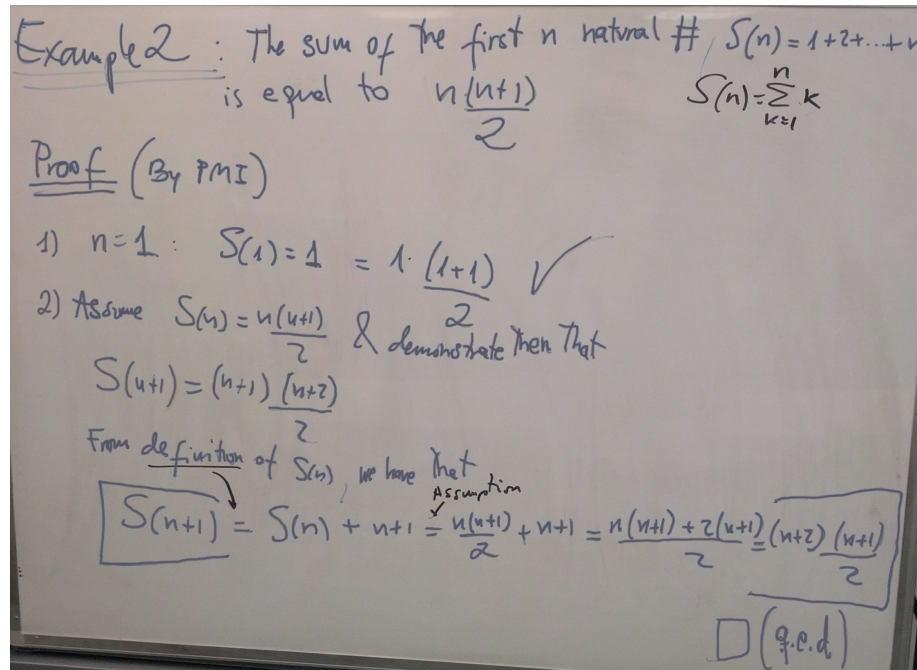 Example 2 : The sum of the first n natural #, S(n) = 1+2+...+n
is equal to n(n+1)/2 S(n) = ∑_{k=1}^{n} k
Proof (By PMI)
1) n=1 : S(1) = 1 = 1·(1+1)/2 ✓
2) Assume S(n) = n(n+1)/2 & demonstrate then that
S(n+1) = (n+1)(n+2)/2
From definition of S(n), we have that
Assumption
S(n+1) = S(n) + n+1 = n(n+1)/2 + n+1 = n(n+1) + 2(n+1)/2 = (n+2)(n+1)/2
□ (q.e.d)